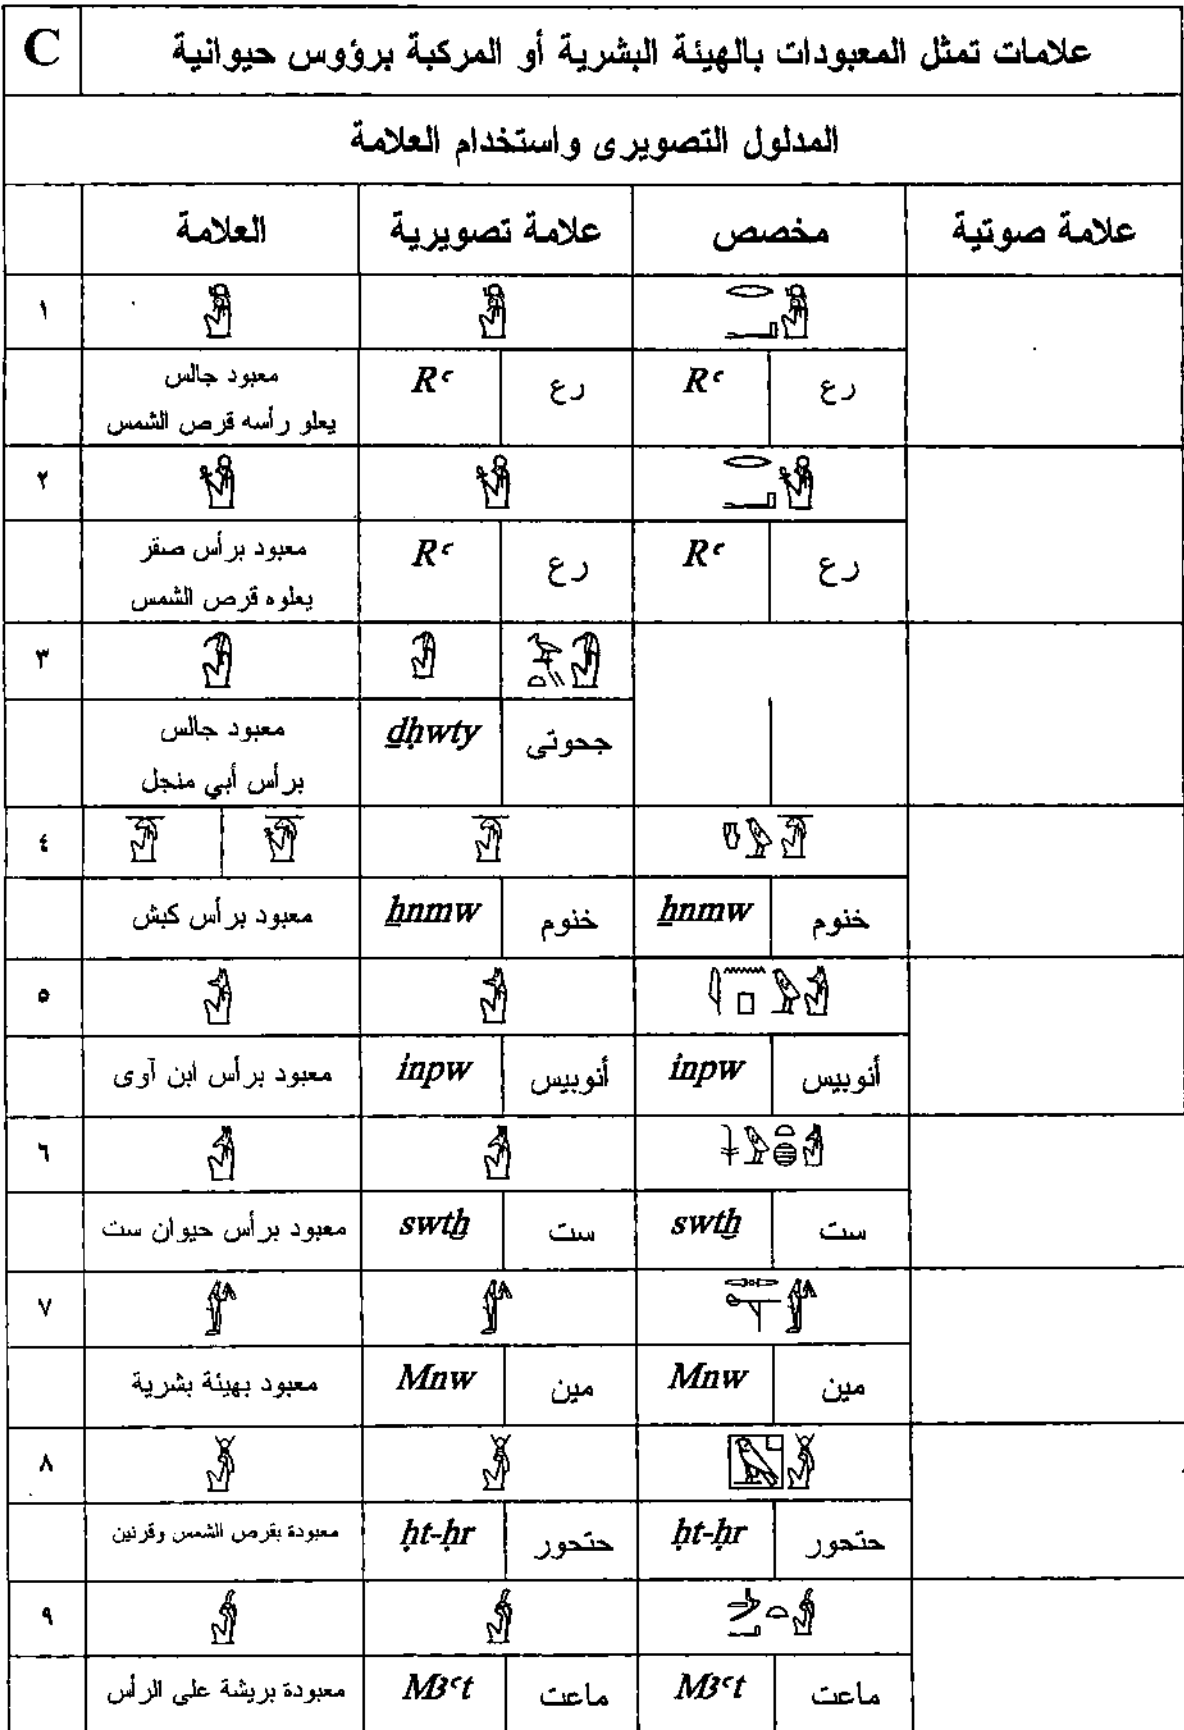 C علامات تمثل المعبودات بالهيئة البشرية أو المركبة برؤوس حيوانية
المدلول التصويرى واستخدام العلامة
العلامة علامة تصويرية مخصص علامة صوتية
١
معبود جالس
يعلو رأسه قرص الشمس
Rꜥ رع Rꜥ رع
٢
معبود برأس صقر
يعلوه قرص الشمس
Rꜥ رع Rꜥ رع
٣
معبود جالس
برأس أبي منجل
ḏḥwty جحوتى
٤
معبود برأس كبش ẖnmw خنوم ẖnmw خنوم
٥
معبود برأس ابن آوى inpw أنوبيس inpw أنوبيس
٦
معبود برأس حيوان ست swtẖ ست swtẖ ست
٧
معبود بهيئة بشرية Mnw مين Mnw مين
٨
معبودة بقرص الشمس وقرنين ḥt-ḥr حتحور ḥt-ḥr حتحور
٩
معبودة بريشة على الرأس Mꜣꜥt ماعت Mꜣꜥt ماعت